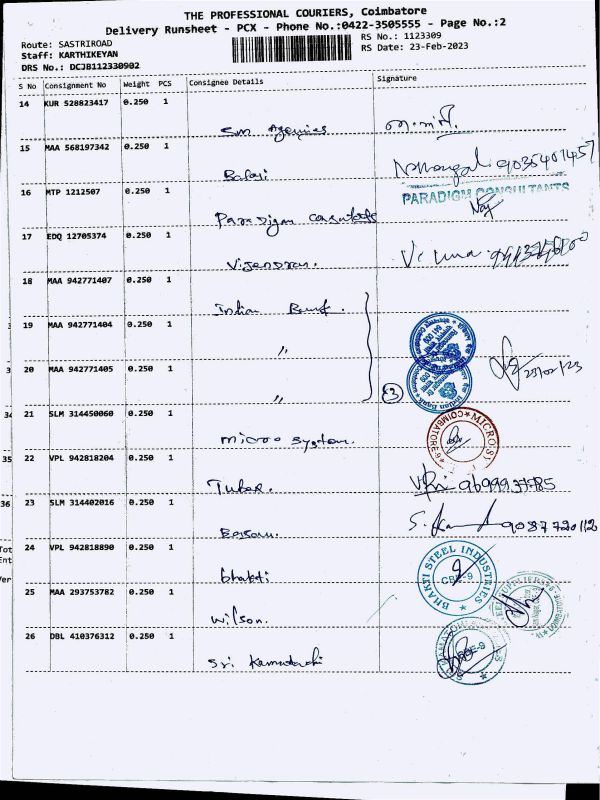 THE PROFESSIONAL COURIERS, Coimbatore
Delivery Runsheet - PCX - Phone No.:0422-3505555 - Page No.:2
Route: SASTRIROAD RS No.: 1123309
Staff: KARTHIKEYAN RS Date: 23-Feb-2023
DRS No.: DCJB112330902
S No Consignment No Weight PCS Consignee Details Signature
14 KUR 528823417 0.250 1
Sun Agencies
15 MAA 568197342 0.250 1
Balaji 9035401457
16 MTP 1212507 0.250 1 PARADIGM CONSULTANTS
Paradigm Consultants
17 EDQ 12705374 0.250 1
Vijendran.
18 MAA 942771407 0.250 1
Indian Bank.
19 MAA 942771404 0.250 1
"
20 MAA 942771405 0.250 1 23/02/23
" (3)
21 SLM 314450060 0.250 1 MICRO COIMBATORE-9
micro system.
22 VPL 942818204 0.250 1
Tubes.
23 SLM 314402016 0.250 1
9087720112
24 VPL 942818890 0.250 1 BHAKTI STEEL INDUSTRIES CBE-9
bhakti
25 MAA 293753782 0.250 1
Wilson.
26 DBL 410376312 0.250 1
Sri Kamatachi